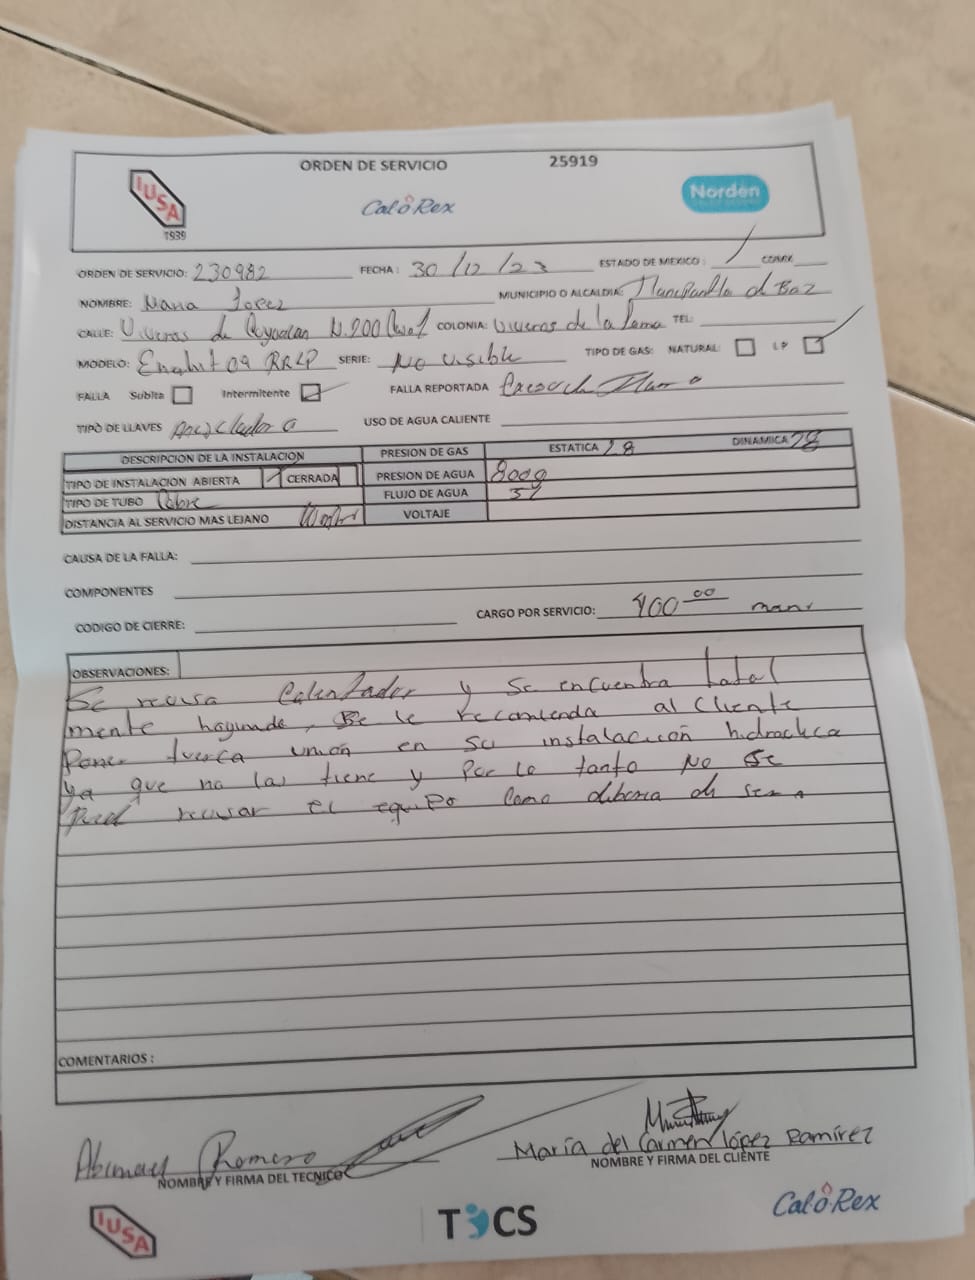 ORDEN DE SERVICIO 25919
IUSA
1939
CaloRex
Norden
ORDEN DE SERVICIO: 230982 FECHA: 30/12/23 ESTADO DE MEXICO: / CDMX
NOMBRE: Maria Lopez MUNICIPIO O ALCALDIA: de Baz
CALLE: Viveros de Coyoacan N.200 COLONIA: Viveros de la Loma TEL:
MODELO: 09 RRLP SERIE: No visible TIPO DE GAS: NATURAL: LP
FALLA Subita Intermitente FALLA REPORTADA
TIPO DE LLAVES Mezcladora USO DE AGUA CALIENTE
DESCRIPCION DE LA INSTALACION PRESION DE GAS ESTATICA 28 DINAMICA 28
TIPO DE INSTALACION ABIERTA CERRADA PRESION DE AGUA 800g
TIPO DE TUBO Cobre FLUJO DE AGUA
DISTANCIA AL SERVICIO MAS LEJANO VOLTAJE
CAUSA DE LA FALLA:
COMPONENTES
CODIGO DE CIERRE: CARGO POR SERVICIO: 400.00
OBSERVACIONES:
Se revisa Calentador y se encuentra total
mente , se le recomienda al cliente
Poner tuerca unión en su instalación hidraulica
ya que no las tiene y por lo tanto No se
Pued revisar el equipo como deberia de ser
COMENTARIOS :
Romero
María del Carmen López Ramírez
NOMBRE Y FIRMA DEL TECNICO NOMBRE Y FIRMA DEL CLIENTE
IUSA
TOCS
CaloRex